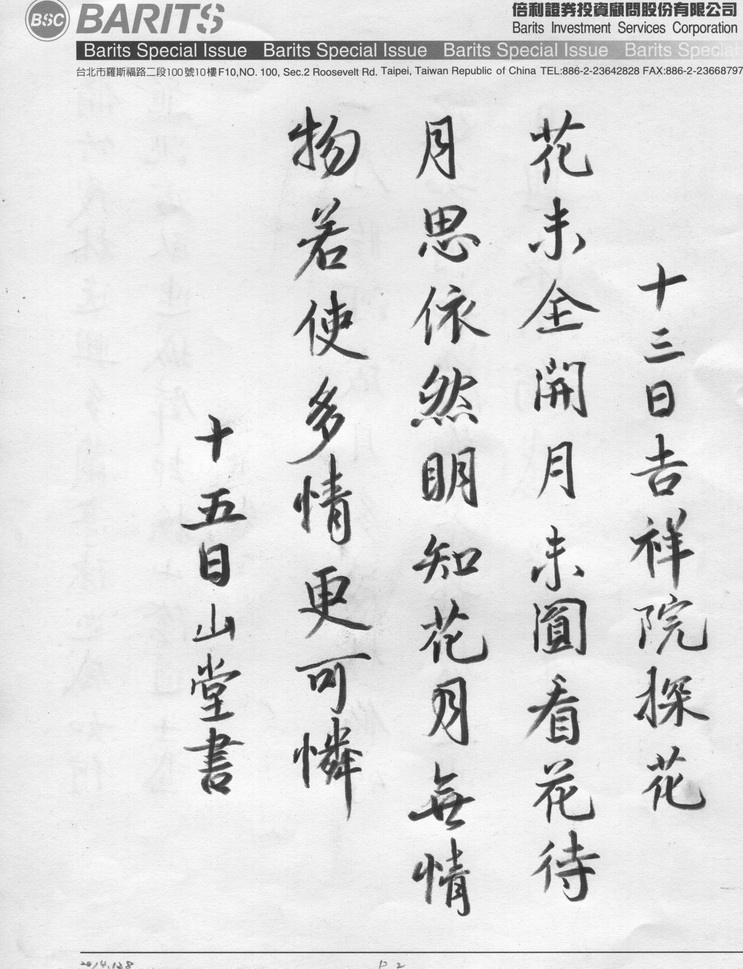 BSC BARITS
倍利證券投資顧問股份有限公司
Barits Investment Services Corporation
Barits Special Issue Barits Special Issue Barits Special Issue Barits Special
台北市羅斯福路二段100號10樓F10,NO. 100, Sec.2 Roosevelt Rd. Taipei, Taiwan Republic of China TEL:886-2-23642828 FAX:886-2-23668797
十三日吉祥院探花
花未全開月未圓看花待
月思依然明知花月無情
物若使多情更可憐
十五日山堂書
2014.128
P 2